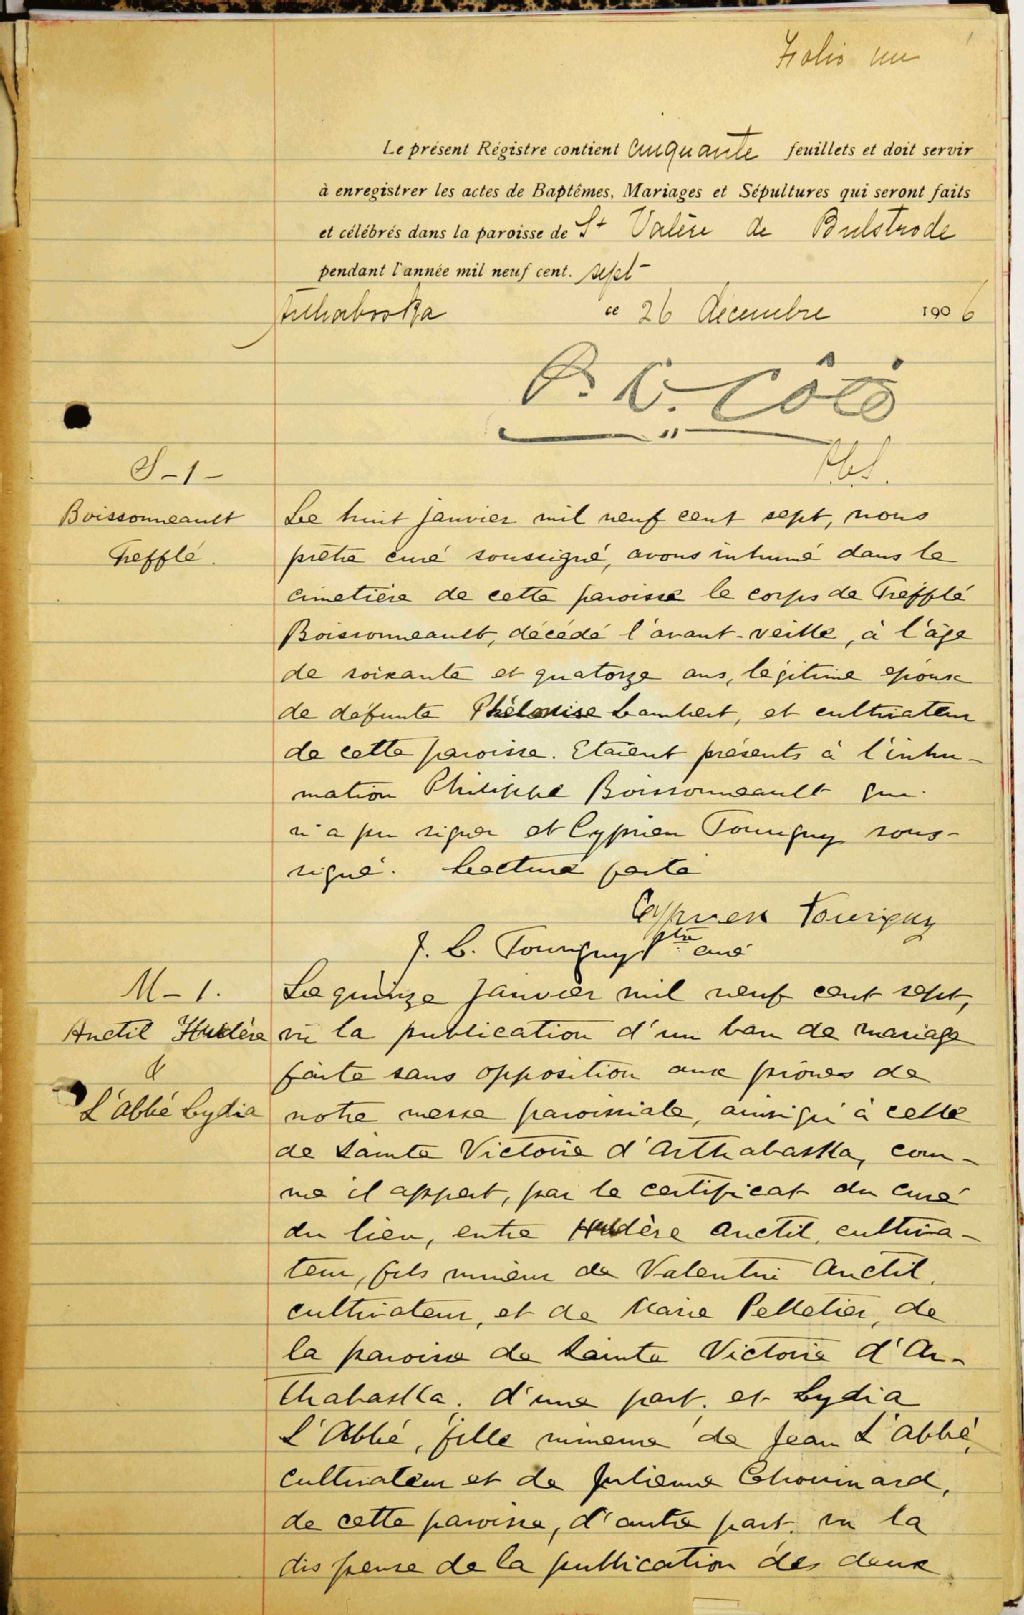 Folio un
Le présent Régistre contient cinquante feuillets et doit servir
à enregistrer les actes de Baptêmes, Mariages et Sépultures qui seront faits
et célébrés dans la paroisse de St Valère de Bulstrode
pendant l'année mil neuf cent. sept
Arthabaska ce 26 décembre 1906
P. C. Côté
P.C.S.
S-1-
Boissonneault
Trefflé.
Le huit janvier mil neuf cent sept, nous
prêtre curé soussigné, avons inhumé dans le
cimetière de cette paroisse le corps de Trefflé
Boissonneault, décédé l'avant-veille, à l'âge
de soixante et quatorze ans, légitime époux
de défunte Philonise Lambert, et cultivateur
de cette paroisse. Etaient présents à l'inhu-
mation Philippe Boissonneault qui
n'a pu signer et Cyprien Tourigny sous-
signé. Lecture faite
Cyprien Tourigny
J. C. Tourigny Ptre curé
M-1.
Anctil
&
L'Abbé Lydia
Le quinze janvier mil neuf cent sept,
vu la publication d'un ban de mariage
faite sans opposition aux prônes de
notre messe paroissiale, ainsi qu'à celle
de Sainte Victoire d'Arthabaska, com-
me il appert, par le certificat du curé
du lieu, entre Anctil, cultiva-
teur, fils mineur de Valentin Anctil,
cultivateur, et de Marie Pelletier, de
la paroisse de Sainte Victoire d'Ar-
thabaska. d'une part. et Lydia
L'Abbé, fille mineure de Jean L'Abbé,
cultivateur et de Julienne Chouinard,
de cette paroisse, d'autre part. vu la
dispense de la publication des deux